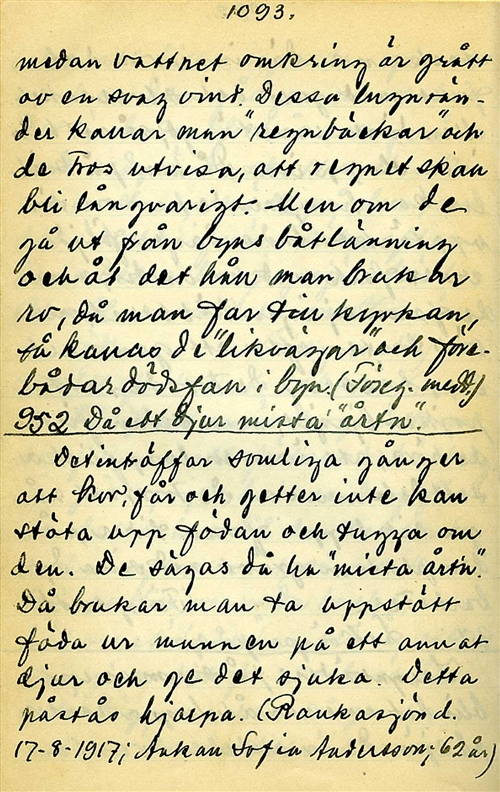 1093.
medan vattnet omkring är grått
av en svag vind. Dessa lugnrän-
der kallar man "regnbäckar" och
de tros utvisa, att regnet skall
bli långvarigt. Men om de
gå ut från byns båtlänning
och åt det håll man brukar
ro, då man far till kyrkan,
så kallas de "likvägar" och före-
bådar dödsfall i byn. (Föreg. medd.)
952 Då ett djur mista' "årtn".
Det inträffar somliga gånger
att kor, får och getter inte kan
stöta upp födan och tugga om
den. De sägas då ha "mista årtn".
Då brukar man ta uppstött
föda ur munnen på ett annat
djur och ge det sjuka. Detta
påstås hjälpa. (Raukasjön d.
17-8-1917; Änkan Sofia Andersson; 62 år)